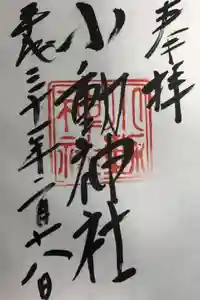 奉拝
小動神社
平成三十一年二月十八日